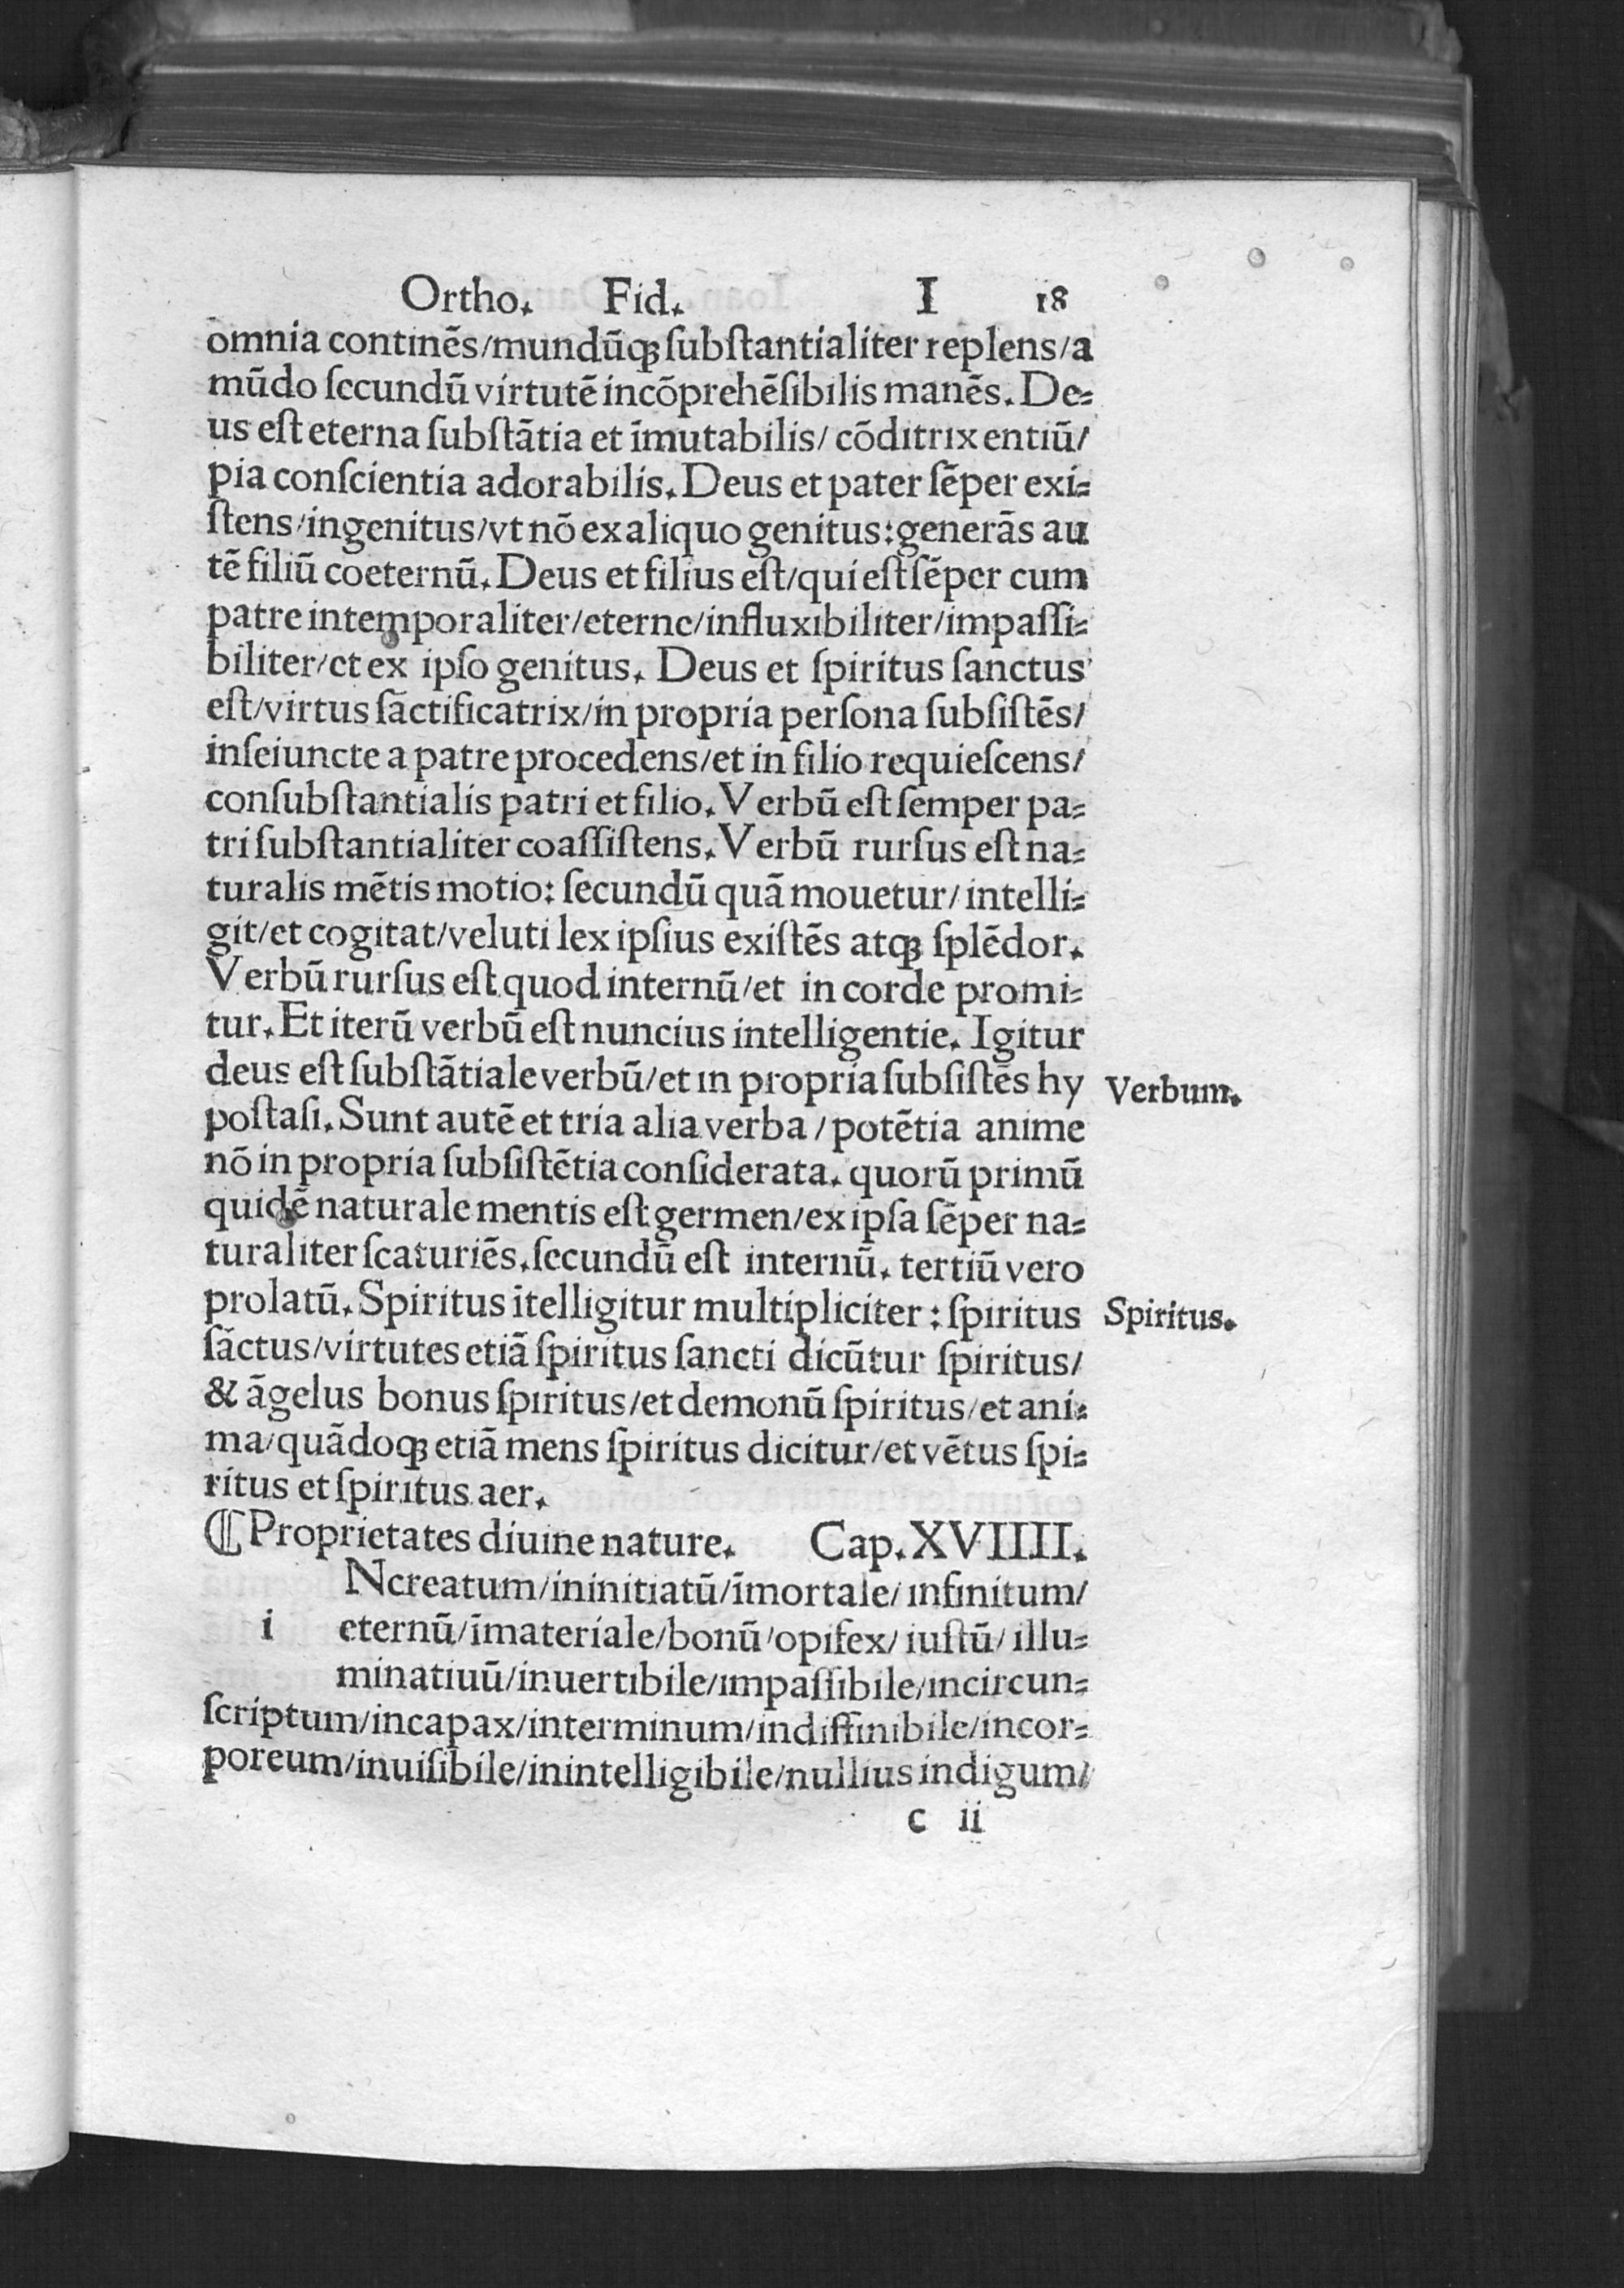 Ortho. Fid. I 18
omnia continēs/mundūqꝫ ſubſtantialiter replens/a
mūdo ſecundū virtutē incōprehēſibilis manēs. De⸗
us eſt eterna ſubſtātia et īmutabilis/ cōditrix entiū/
pia conſcientia adorabilis. Deus et pater ſēper exi⸗
ſtens/ingenitus/vt nō ex aliquo genitus: generās au
tē filiū coeternū. Deus et filius eſt/qui eſt ſēper cum
patre intemporaliter/eterne/influxibiliter/impaſſi⸗
biliter/et ex ipſo genitus. Deus et ſpiritus ſanctus
eſt/virtus ſāctificatrix/in propria perſona ſubſiſtēs/
inſeiuncte a patre procedens/et in filio requieſcens/
conſubſtantialis patri et filio. Verbū eſt ſemper pa⸗
tri ſubſtantialiter coaſſiſtens. Verbū rurſus eſt na⸗
turalis mētis motio: ſecundū quā mouetur/ intelli⸗
git/et cogitat/veluti lex ipſius exiſtēs atqꝫ ſplēdor.
Verbū rurſus eſt quod internū/et in corde promi⸗
tur. Et iterū verbū eſt nuncius intelligentie. Igitur
deus eſt ſubſtātiale verbū/et in propria ſubſiſtēs hy
Verbum.
poſtaſi. Sunt autē et tria alia verba/potētia anime
nō in propria ſubſiſtētia conſiderata. quorū primū
quidē naturale mentis eſt germen/ex ipſa ſēper na⸗
turaliter ſcaturiēs. ſecundū eſt internū. tertiū vero
prolatū. Spiritus ītelligitur multipliciter: ſpiritus
Spiritus.
ſāctus/virtutes etiā ſpiritus ſancti dicūtur ſpiritus/
& āgelus bonus ſpiritus/et demonū ſpiritus/et ani⸗
ma/quādoqꝫ etiā mens ſpiritus dicitur/et vētus ſpi⸗
ritus et ſpiritus aer.
⸿ Proprietates diuine nature. Cap. XVIIII.
Ncreatum/ininitiatū/īmortale/ infinitum/
i eternū/īmateriale/bonū/opifex/ iuſtū/ illu⸗
minatiuū/inuertibile/impaſſibile/incircun⸗
ſcriptum/incapax/interminum/indiffinibile/incor⸗
poreum/inuiſibile/inintelligibile/nullius indigum/
c ii